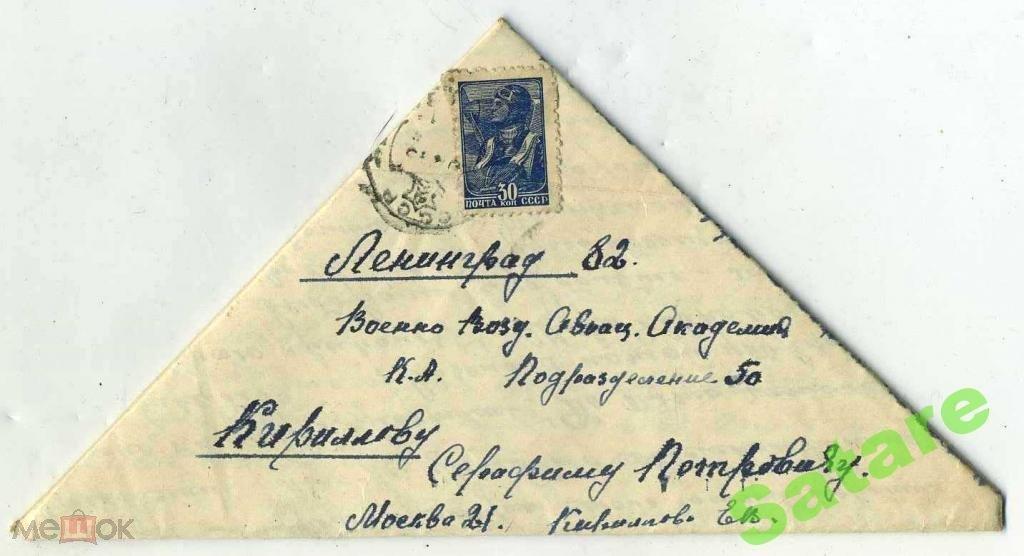 30
ПОЧТА КОП СССР
СССР
Ленинград 82.
Военно Возд. Авиац. Академия
К.А. Подразделение 50
Кириллову
Серафиму Петровичу.
Москва 21. Кириллова
Satare
мешок